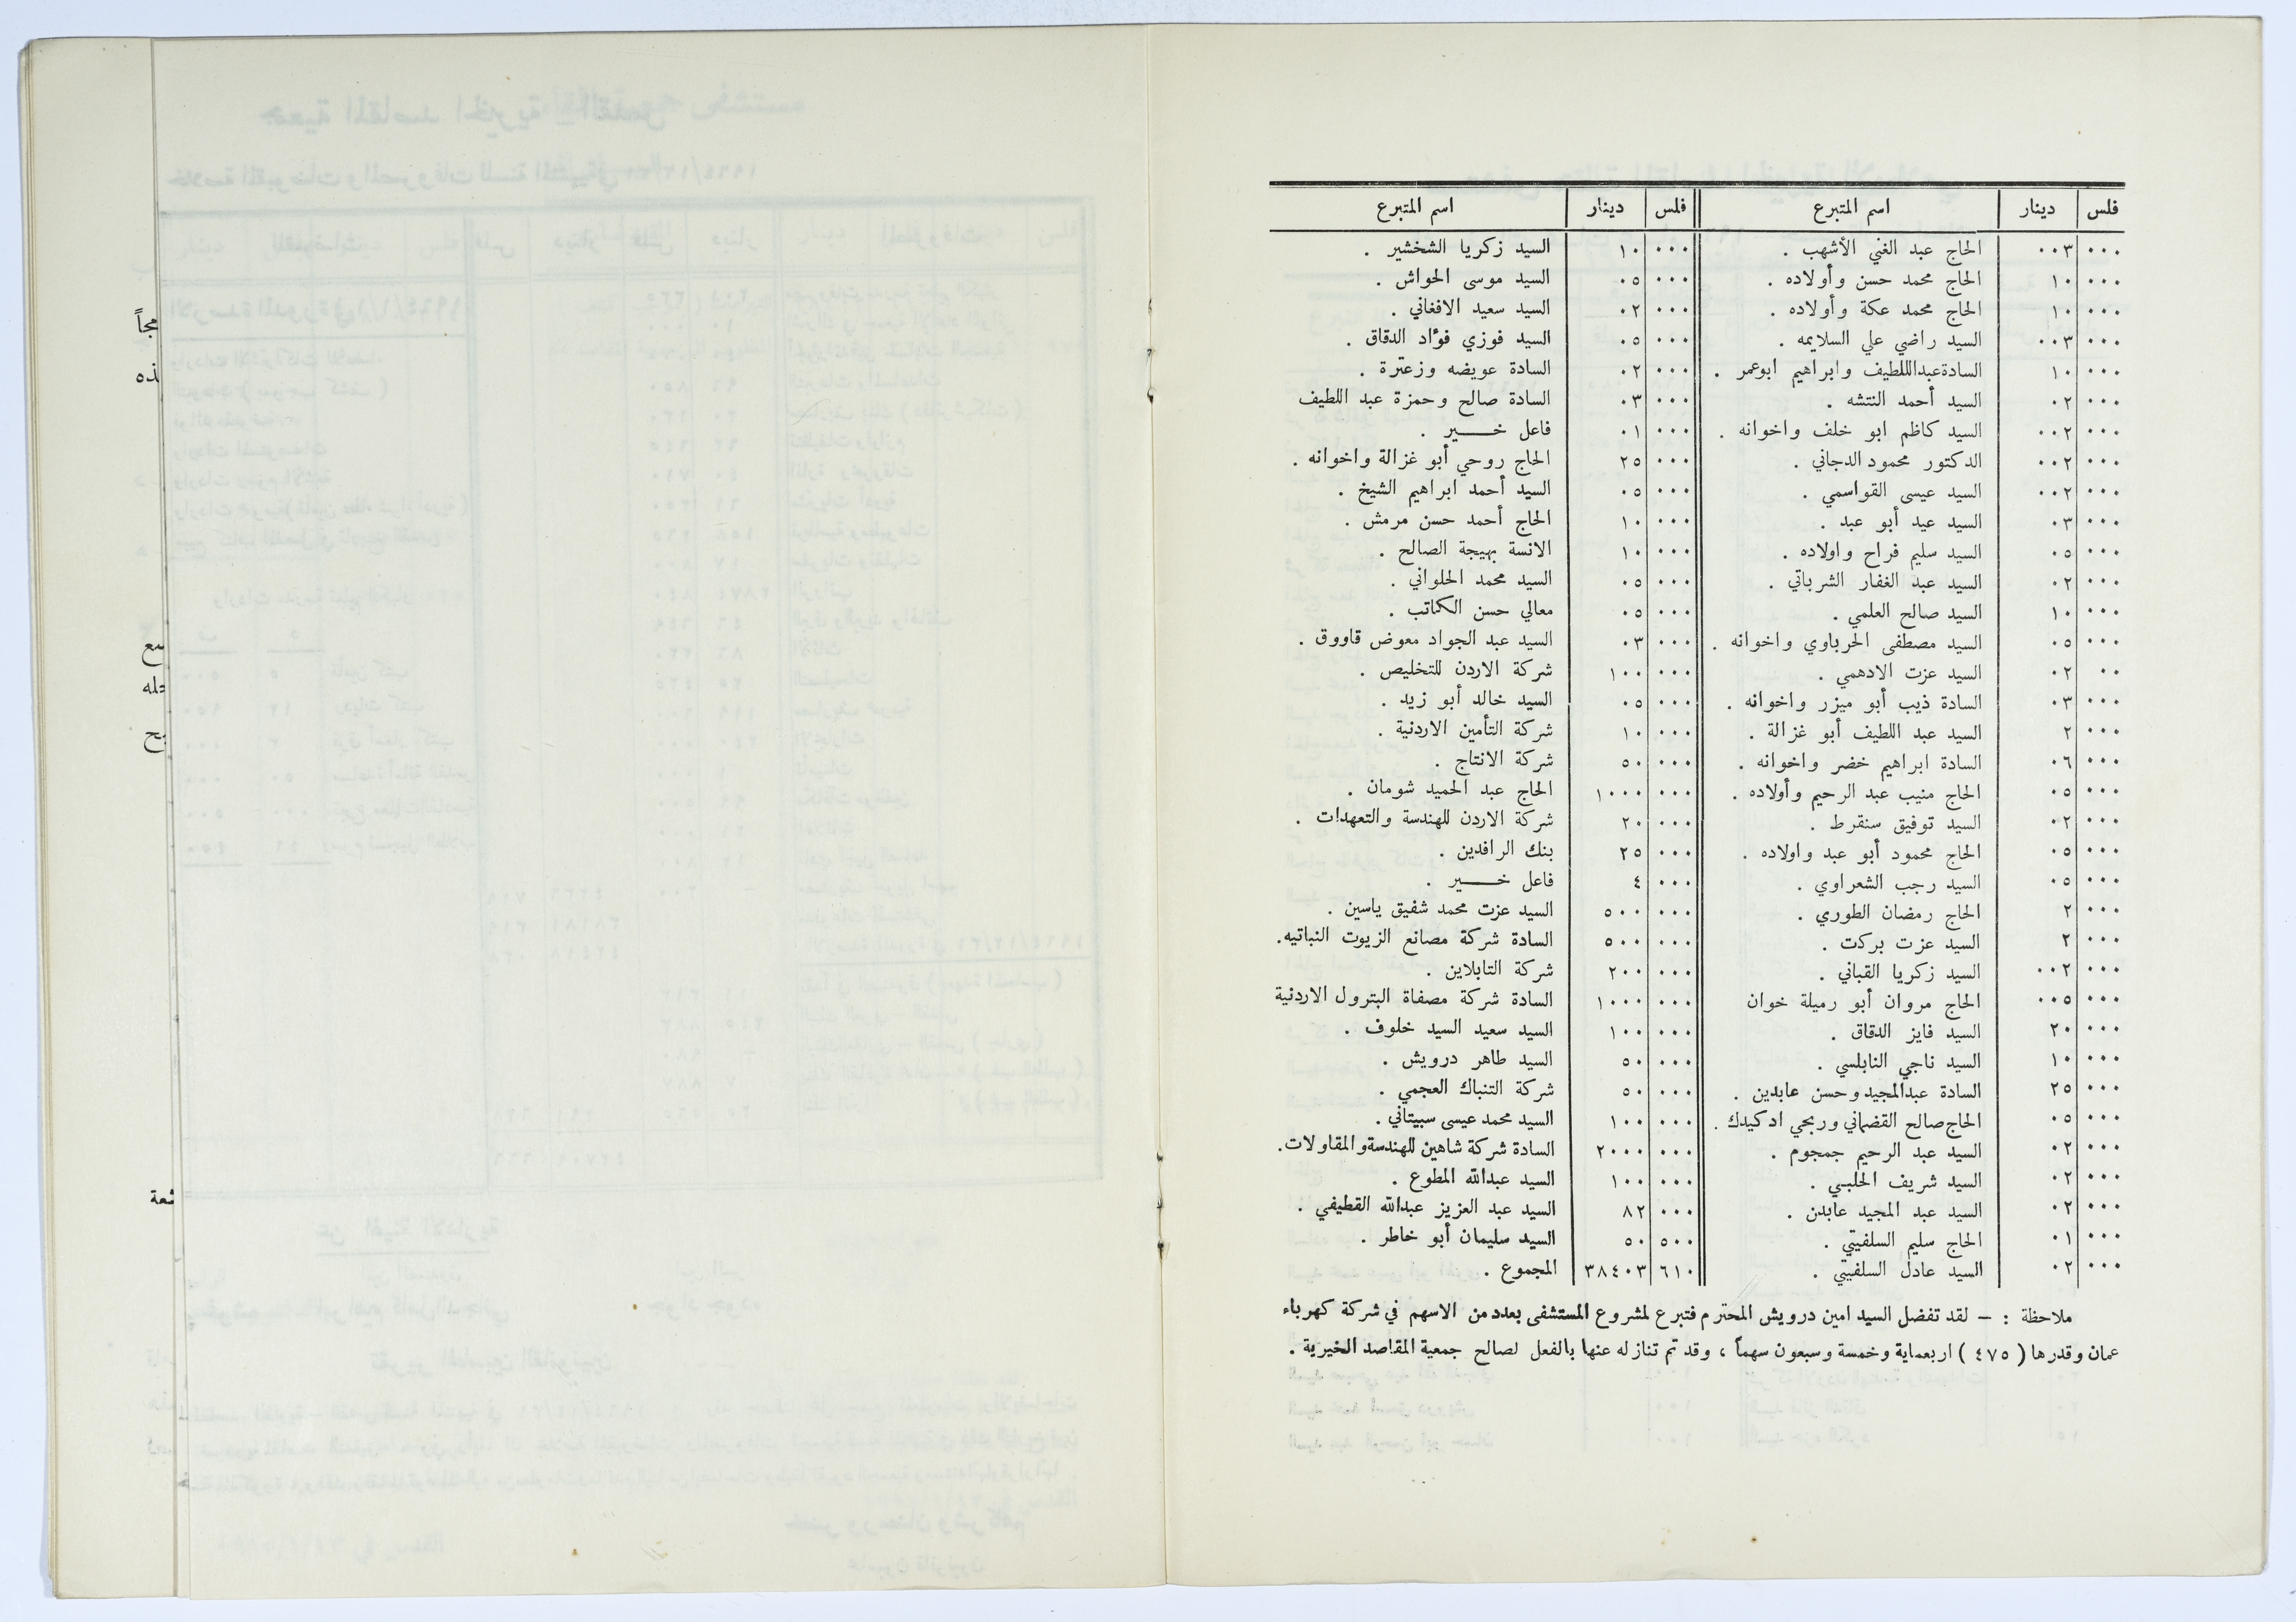 فلس دينار اسم المتبرع فلس دينار اسم المتبرع
٠٠٠ ٠٠٣ الحاج عبد الغني الأشهب .
٠٠٠ ١٠ الحاج محمد حسن وأولاده .
٠٠٠ ١٠ الحاج محمد عكة وأولاده .
٠٠٠ ٠٠٣ السيد راضي علي السلايمه .
٠٠٠ ١٠ السادة عبداللطيف وابراهيم ابوعمر .
٠٠٠ ٠٢ السيد أحمد النتشه .
٠٠٠ ٠٠٢ السيد كاظم ابو خلف واخوانه .
٠٠٠ ٠٠٢ الدكتور محمود الدجاني .
٠٠٠ ٠٠٢ السيد عيسى القواسمي .
٠٠٠ ٠٣ السيد عيد أبو عبد .
٠٠٠ ٠٥ السيد سليم فراح واولاده .
٠٠٠ ٠٢ السيد عبد الغفار الشرباتي .
٠٠٠ ١٠ السيد صالح العلمي .
٠٠٠ ٠٥ السيد مصطفى الحرباوي واخوانه .
٠٠ ٠٢ السيد عزت الادهمي .
٠٠٠ ٠٣ السادة ذيب أبو ميزر واخوانه .
٠٠٠ ٢ السيد عبد اللطيف أبو غزالة .
٠٠٠ ٠٦ السادة ابراهيم خضر واخوانه .
٠٠٠ ٠٥ الحاج منيب عبد الرحيم وأولاده .
٠٠٠ ٠٢ السيد توفيق سنقرط .
٠٠٠ ٠٥ الحاج محمود أبو عبد واولاده .
٠٠٠ ٠٥ السيد رجب الشعراوي .
٠٠٠ ٢ الحاج رمضان الطوري .
٠٠٠ ٢ السيد عزت بركت .
٠٠٠ ٠٠٢ السيد زكريا القباني .
٠٠٠ ٠٠٥ الحاج مروان أبو رميلة خوان
٠٠٠ ٢٠ السيد فايز الدقاق .
٠٠٠ ١٠ السيد ناجي النابلسي .
٠٠٠ ٢٥ السادة عبدالمجيد وحسن عابدين .
٠٠٠ ٠٥ الحاج صالح القضماني وربحي ادكيدك .
٠٠٠ ٠٢ السيد عبد الرحيم جمجوم .
٠٠٠ ٠٢ السيد شريف الحلبي .
٠٠٠ ٠٢ السيد عبد المجيد عابدن .
٠٠٠ ٠١ الحاج سليم السلفيتي .
٠٠٠ ٠٢ السيد عادل السلفيتي .
٠٠٠ ١٠ السيد زكريا الشخشير .
٠٠٠ ٠٥ السيد موسى الحواش .
٠٠٠ ٠٢ السيد سعيد الافغاني .
٠٠٠ ٠٥ السيد فوزي فؤاد الدقاق .
٠٠٠ ٠٢ السادة عويضه وزعترة .
٠٠٠ ٠٣ السادة صالح وحمزة عبد اللطيف
٠٠٠ ٠١ فاعل خير .
٠٠٠ ٢٥ الحاج روحي أبو غزالة واخوانه .
٠٠٠ ٠٥ السيد أحمد ابراهيم الشيخ .
٠٠٠ ١٠ الحاج أحمد حسن مرمش .
٠٠٠ ١٠ الانسة بهيجة الصالح .
٠٠٠ ٠٥ السيد محمد الحلواني .
٠٠٠ ٠٥ معالي حسن الكاتب .
٠٠٠ ٠٣ السيد عبد الجواد معوض قاووق .
٠٠٠ ١٠٠ شركة الاردن للتخليص .
٠٠٠ ٠٥ السيد خالد أبو زيد .
٠٠٠ ١٠ شركة التأمين الاردنية .
٠٠٠ ٥٠ شركة الانتاج .
٠٠٠ ١٠٠٠ الحاج عبد الحميد شومان .
٠٠٠ ٢٠ شركة الاردن للهندسة والتعهدات .
٠٠٠ ٢٥ بنك الرافدين .
٠٠٠ ٤ فاعل خير .
٠٠٠ ٥٠٠ السيد عزت محمد شفيق ياسين .
٠٠٠ ٥٠٠ السادة شركة مصانع الزيوت النباتيه.
٠٠٠ ٢٠٠ شركة التابلاين .
٠٠٠ ١٠٠٠ السادة شركة مصفاة البترول الاردنية
٠٠٠ ١٠٠ السيد سعيد السيد خلوف .
٠٠٠ ٥٠ السيد طاهر درويش .
٠٠٠ ٥٠ شركة التنباك العجمي .
٠٠٠ ١٠٠ السيد محمد عيسى سبيتاني .
٠٠٠ ٢٠٠٠ السادة شركة شاهين للهندسة والمقاولات.
٠٠٠ ١٠٠ السيد عبدالله المطوع .
٠٠٠ ٨٢ السيد عبد العزيز عبدالله القطيفي .
٥٠٠ ٥٠ السيد سليمان أبو خاطر .
٦١٠ ٣٨٤٠٣ المجموع .
ملاحظة : – لقد تفضل السيد امين درويش المحترم فتبرع لمشروع المستشفى بعدد من الاسهم في شركة كهرباء
عمان وقدرها ( ٤٧٥ ) اربعماية وخمسة وسبعون سهماً ، وقد تم تنازله عنها بالفعل لصالح جمعية المقاصد الخيرية .